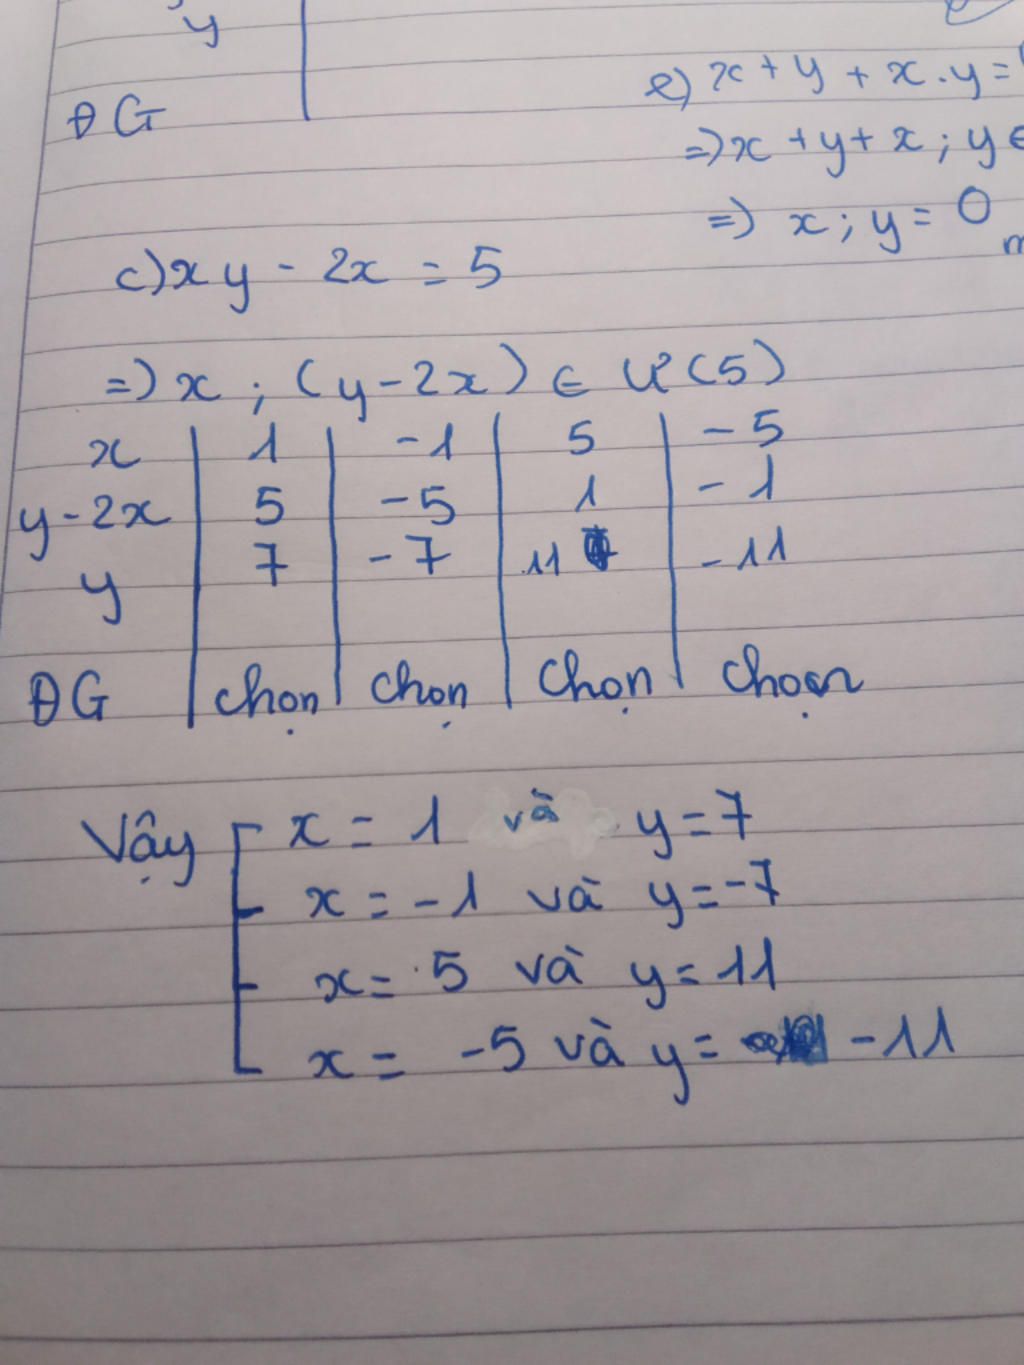 y
ĐG
e) x + y + x . y =
=) x + y + x ; y ∈
=) x ; y = 0
c) xy - 2x = 5
=) x ; (y - 2x) ∈ Ư(5)
x 1 -1 5 -5
y - 2x 5 -5 1 -1
y 7 -7 11 -11
ĐG chọn chọn chọn chọn
Vậy x = 1 và y = 7
x = -1 và y = -7
x = 5 và y = 11
x = -5 và y = -11